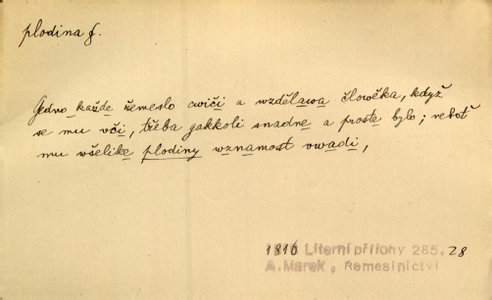 plodina f.
Gedno každe řemeslo cwičí a wzdělawa člowěka, když
se mu učí, třeba gakkoli snadne a proste bylo; neboť
mu wšelike plodiny wznamost uwadí,
1816 Literní přílohy 265, 28
A. Marek, Řemeslnictví